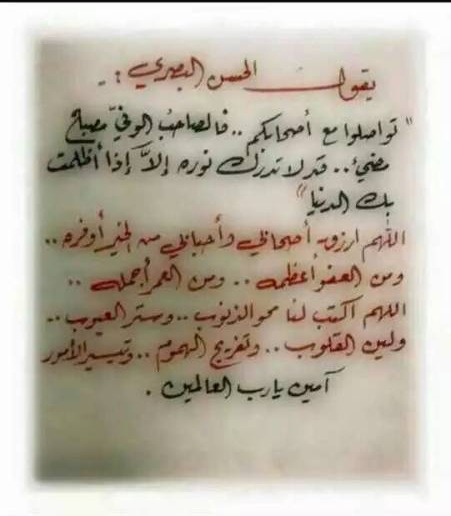 يقول الحسن البصري :-
"تواصلوا مع أصحابكم .. فالصاحب الوفيّ مصباح
مضيء .. قد لا تدرك نوره إلاَّ إذا أظلمت
بك الدنيا"
اللهم ارزق أصحابي وأحبابي من الخير أوفره ..
ومن العفو أعظمه .. ومن العمر أجمله ..
اللهم اكتب لنا محو الذنوب .. وستر العيوب ..
ولين القلوب .. وتفريج الهموم .. وتيسير الأمور
آمين يا رب العالمين .